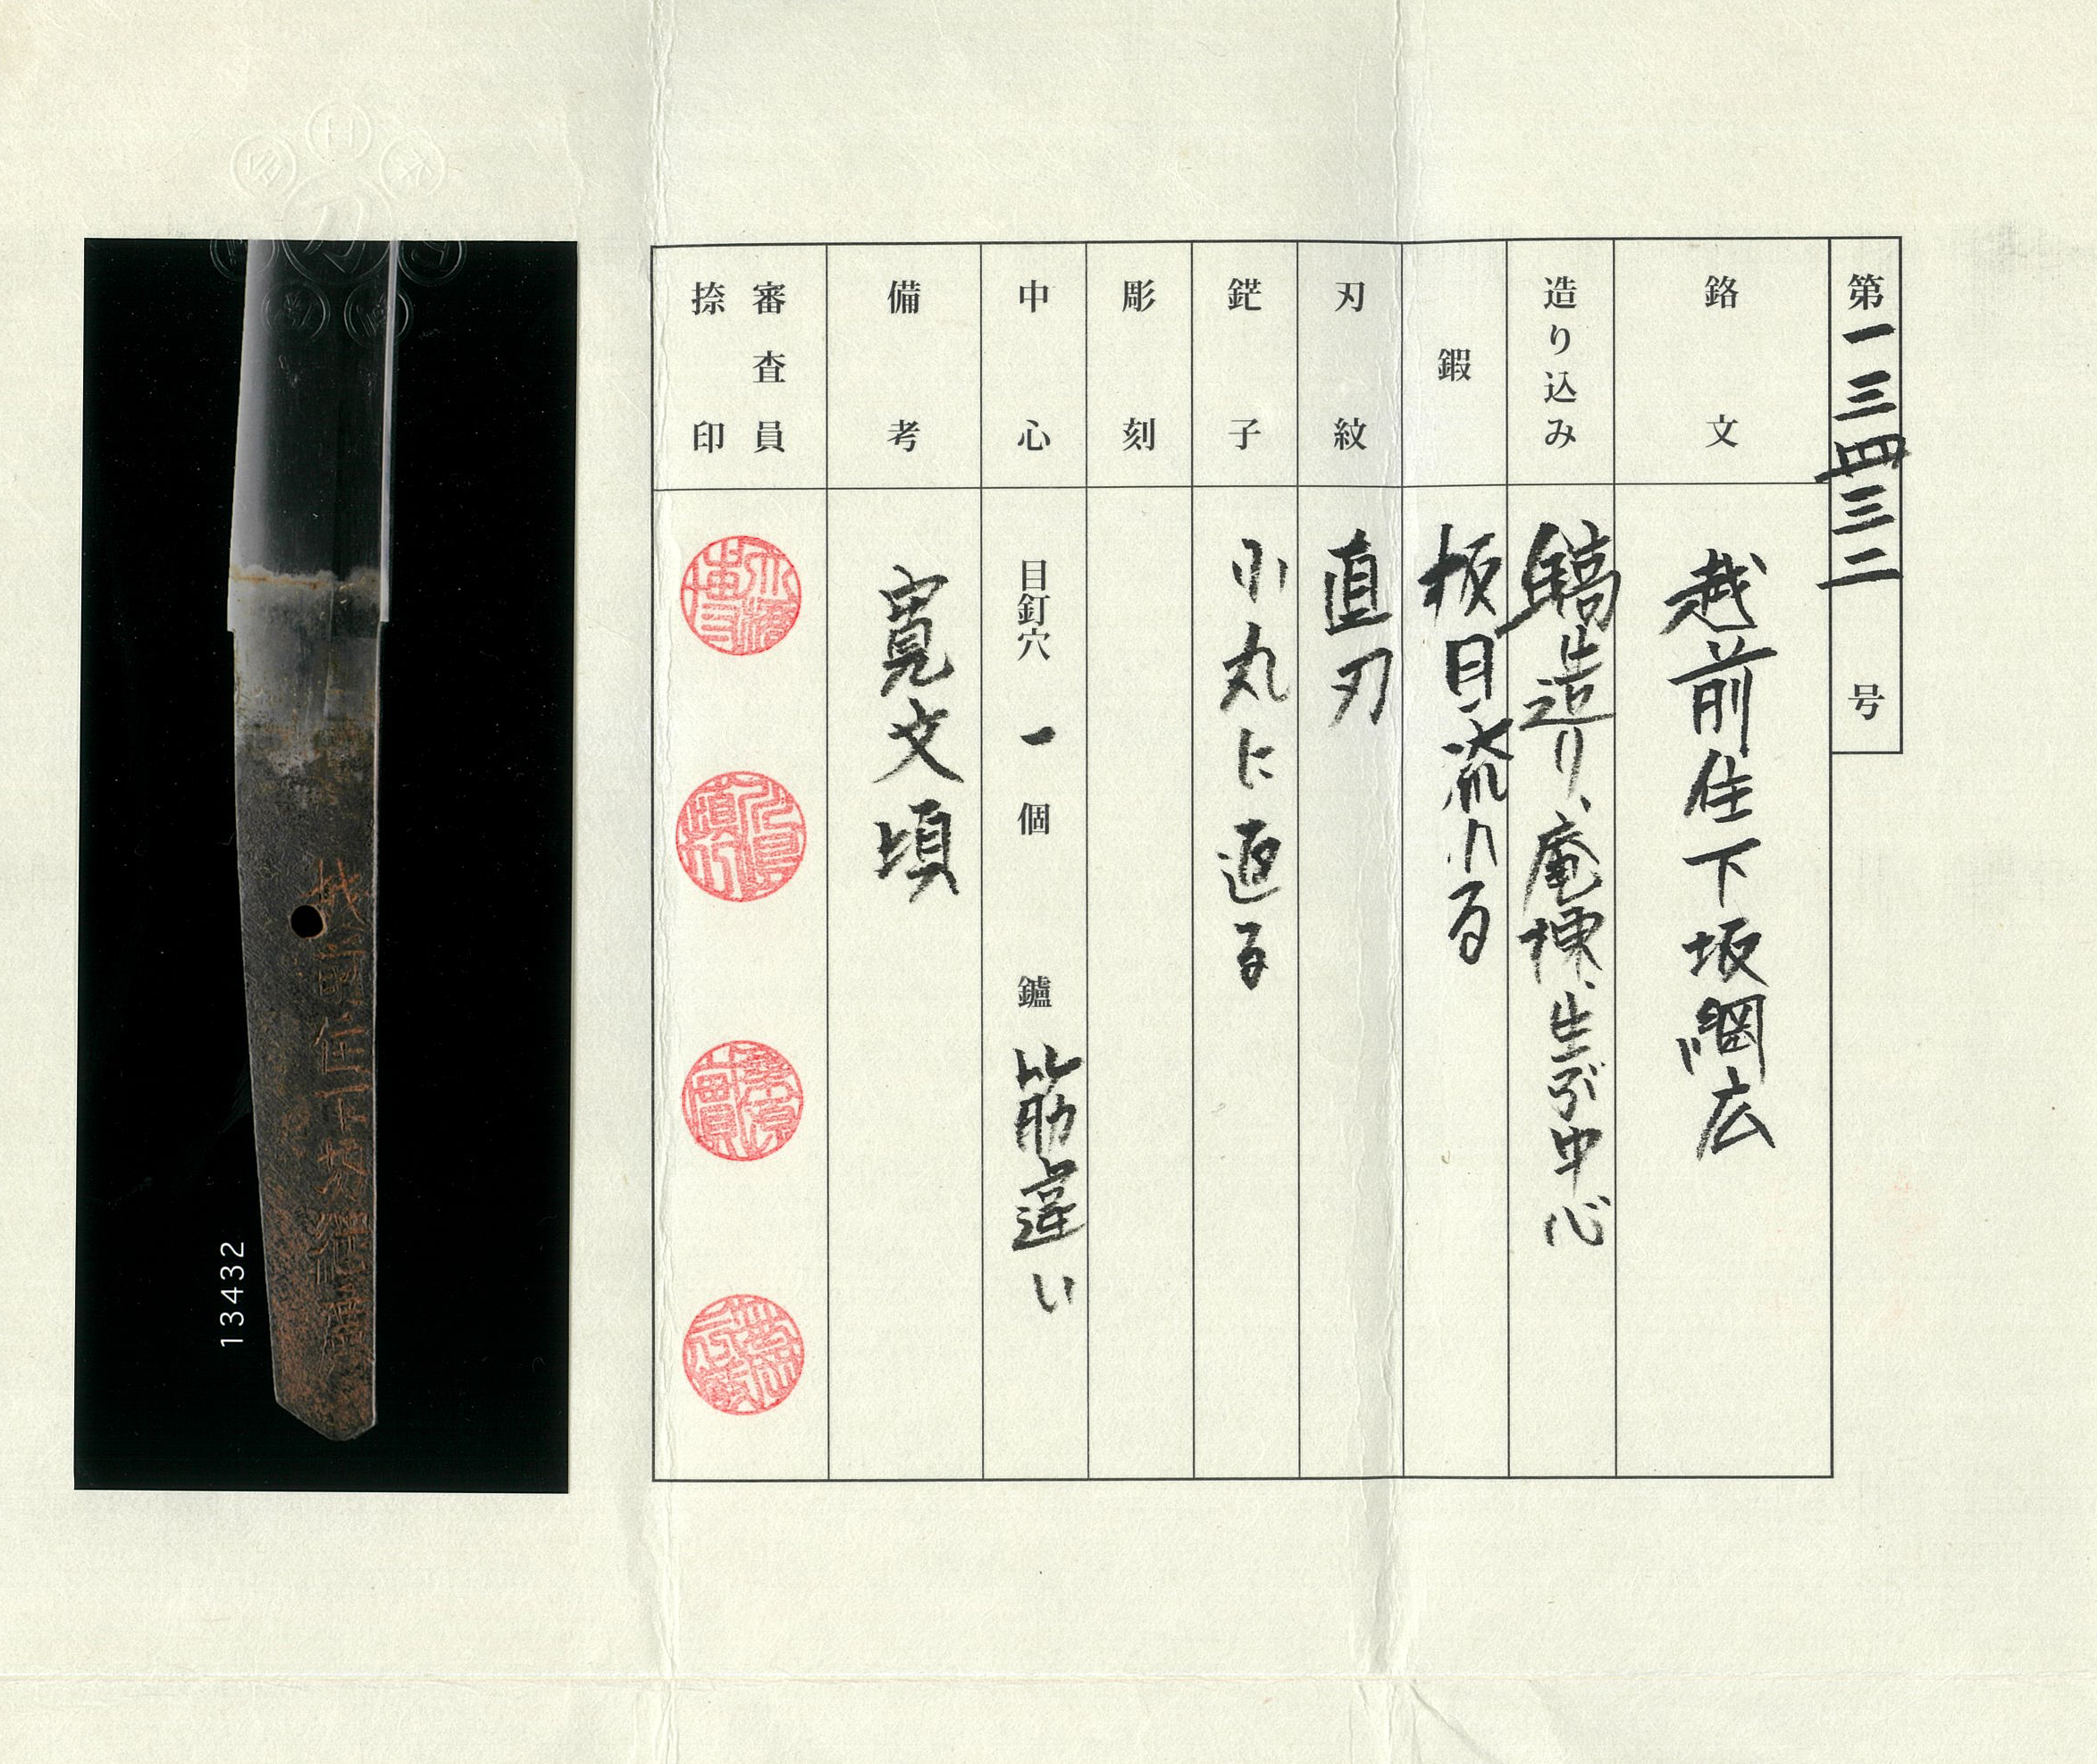 第一三四三二号
銘文
越前住下坂綱広
造り込み
鎬造り、庵棟、生ぶ中心
鍜
板目流れる
刃紋
直刃
鋩子
小丸に返る
彫刻
中心
目釘穴 一 個 鑪 筋違い
備考
寛文頃
審査員
捺印
13432